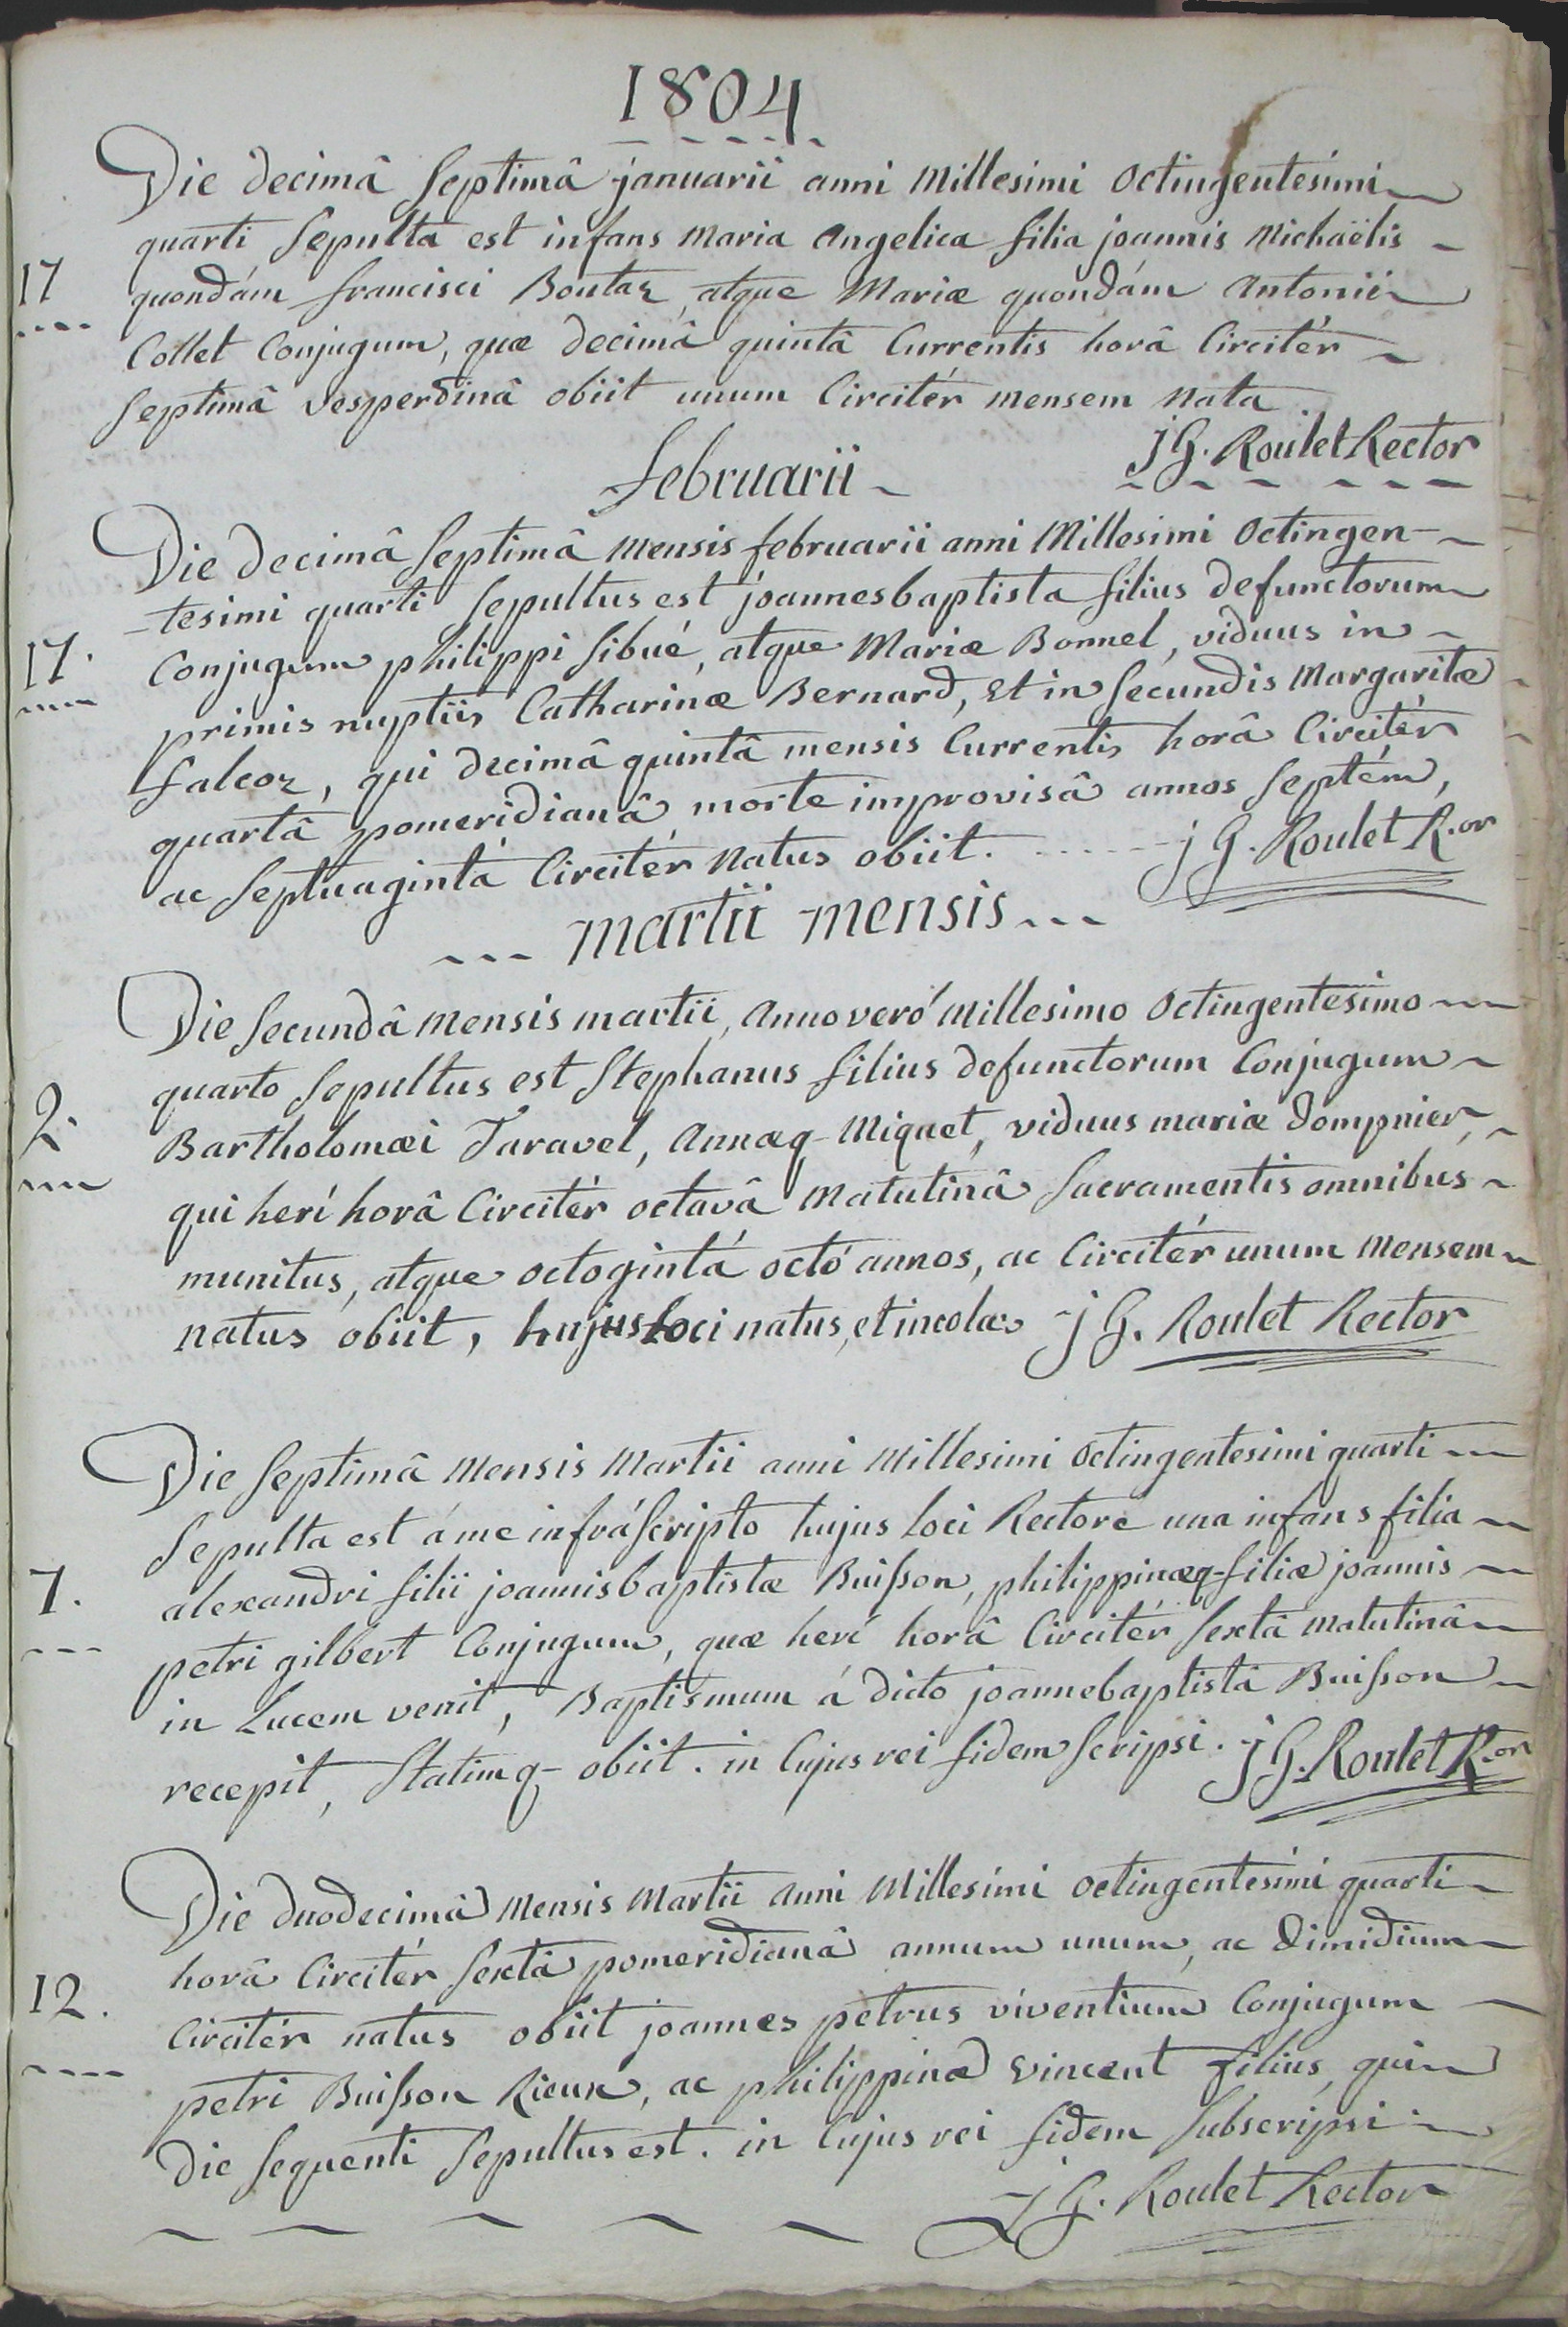 1804
Die decimâ Septimâ januarii anni Millesimi Octingentesimi
quarti Sepulta est infans Maria Angelica filia joannis Michaëlis
17
quondám francisci Boutaz, atque Mariæ quondám Antonii
Collet Conjugum, quæ decimâ quintâ Currentis horâ Circitér
Septimâ vesperdinâ obiit unum Circitér mensem nata.
JG. Roulet Rector
februarii
Die decimâ Septimâ Mensis februarii anni Millesimi Octingen-
-tesimi quarti Sepultus est joannesbaptista filius defunctorum
17.
Conjugum philippi Sibué, atque Mariæ Bonnel, viduus in
primis nuptiis Catharinæ Bernard, et in Secundis Margaritæ
falcoz, qui decimâ quintâ mensis Currentis horâ Circitér
quartâ pomeridianâ morte improvisâ annos Septém,
ac Septuagintá Circitér natus obiit. j G. Roulet R.or
martii mensis
Die Secundâ Mensis martii, Anno veró Millesimo Octingentesimo
quarto Sepultus est Stephanus filius defunctorum Conjugum
2.
Bartholomæi Taravel, Annæq- Miquet, viduus mariæ dompnier,
qui herí horâ Circitér octavâ Matutinâ Sacramentis omnibus
munitus, atque octogintá octó annos, ac Circitér unum Mensem
natus obiit, hujus loci natus, et incola. j G. Roulet Rector
Die Septimâ Mensis Martii anni Millesimi Octingentesimi quarti
Sepulta est á me infráScripto hujus loci Rectore una infans filia
7.
alexandri filii joannisbaptistæ Buisson, philippinæq- filiæ joannis
petri gilbert Conjugum, quæ herí horâ Circitér Sextâ Matutinâ
in Lucem venit, Baptismum á dicto joannebaptistâ Buisson
recepit, Statimq- obiit. in Cujus rei fidem Scripsi. j G. Roulet R.or
Die duodecimâ Mensis Martii Anni Millesimi Octingentesimi quarti
horâ Circitér Sextâ pomeridianâ annum unum, ac dimidium
12.
Circitér natus obiit joannes petrus viventium Conjugum
petri Buisson Rieux, ac philippinæ vincent filius, qui
die Sequenti Sepultus est. in Cujus rei fidem Subscripsi.
J G. Roulet Rector